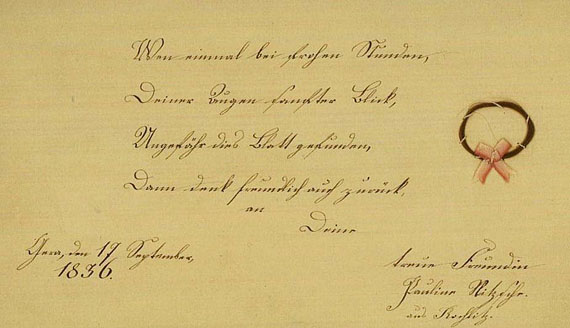 Wen einmal bei frohen Stunden,
Deiner Augen sanfter Blick,
Ungefähr dies Blatt gefunden,
Dann denk freundlich auch zurück,
an
Deine
Gera, den 17 September,
1836.
treue Freundin
Pauline Nitzsche.
aus Rochlitz.